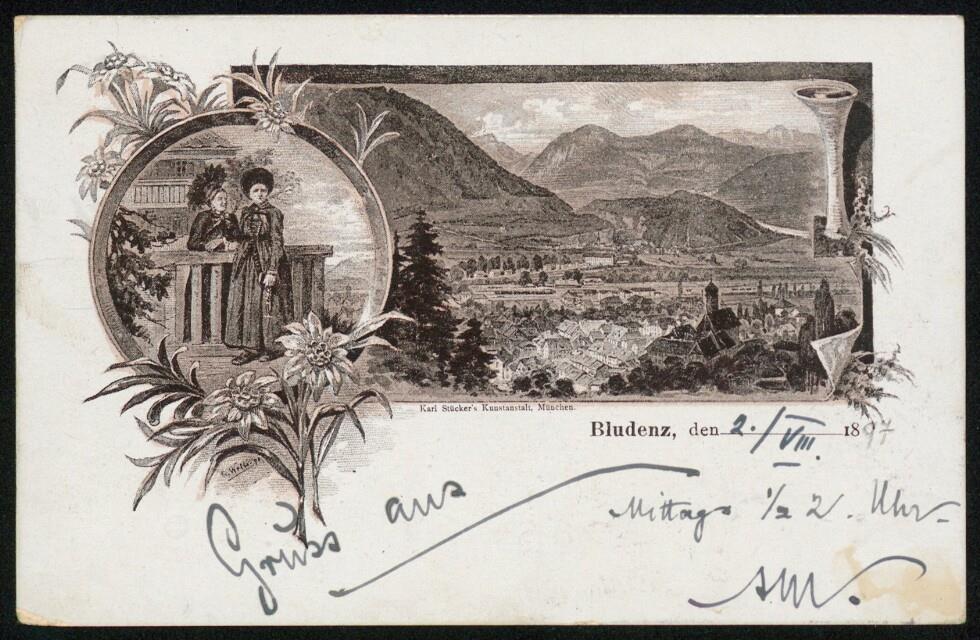 Karl Stücker's Kunstanstalt, München.
Bludenz, den 2./VIII. 1897
Gruss aus
Mittags ½ 2. Uhr.
AW.